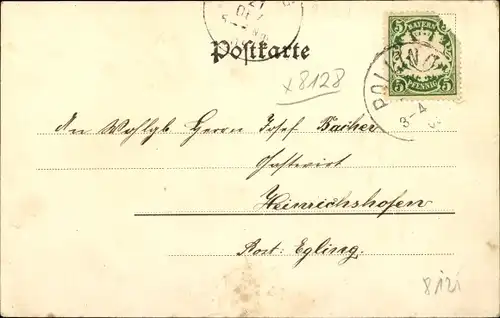 Postkarte
x8128
5 BAYERN 5
PFENNIG
POLLING
3-4
An Wohlgb Herrn Josef Bacher
Gastwirt
Heinrichshofen
Post: Egling.
812